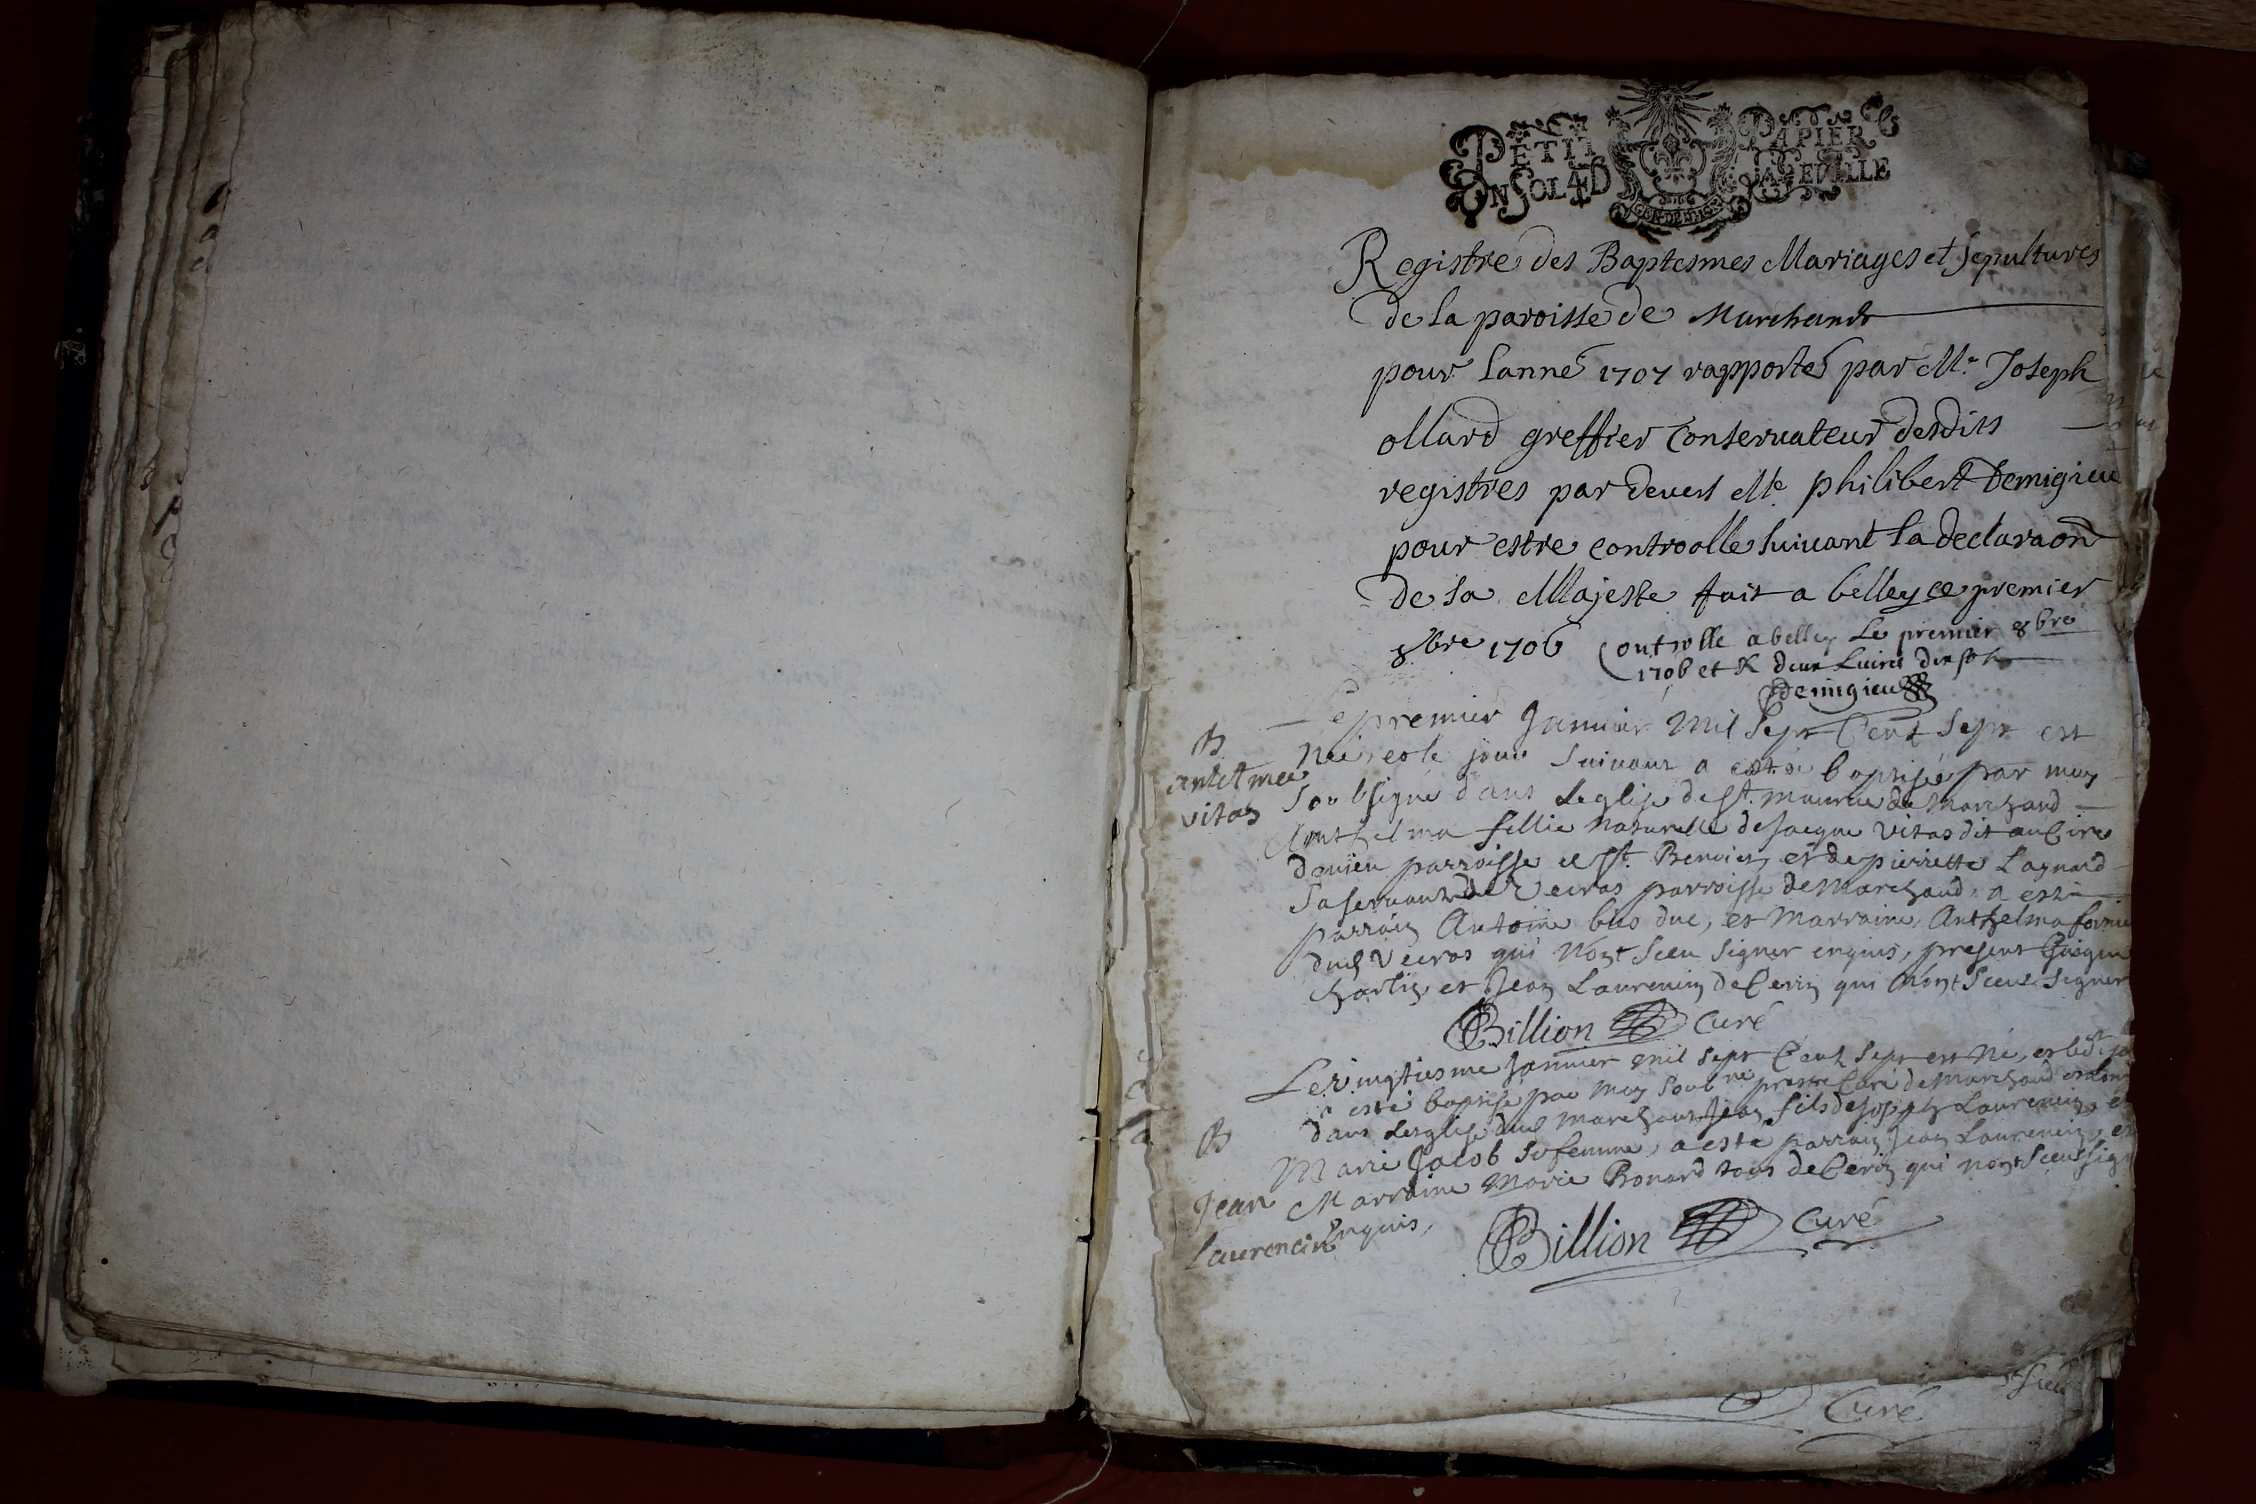 PETIT PAPIER
UN SOL 4D LA FEUILLE
GEN DE DIION
Registre des Baptesmes Mariages et Sepultures
de la paroisse de Marchand
pour Lanné 1707 rapporté par Mr Joseph
ollard greffier Conservateur desdits
registres par devers Me philibert Demigieu
pour estre controolle suivant la declaraon
de sa Majeste fait a belley ce premier
8bre 1706 Controlle a belley Le premier 8bre
1706 et R deux Livres dix sols
Demigieu
Le premier Janvier Mil Sept Cent Sept est
B
Née, et le jour suivant a esté baptisée par moy
antelmee
soubsigné dans Leglise de st. maurice de Marchand
vitas
Anthelma fillie naturelle de Jacque Vitas dit
parroisse de st. Benoist, et de pierrette Lagnard
sa servante de Vecras parroisse de Marchand, a esté
parrain Antoine duc, et Marraine Anthelma
dud Vecras qui nont sceu signer enquis, present
et Jean Laurencin de Cerin qui nont sceu signer
Billion Curé
Le vingtiesme Janvier mil sept Cent sept est né, et led jo
a esté baptisé par moy soub né prestre Curé de Marchand
dans Lesglise dud Marchand Jean fils de Joseph Laurencin, et
B
Marie Jacob sa femme, a esté parrain Jean Laurencin, et
Jean
Marraine Marie Bonard tous de Cerin qui nont sceu sign
Laurencin
enquis,
Billion Curé
Curé